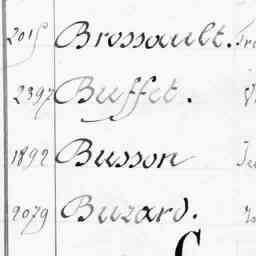 2015 Brossault.
2397 Buffet.
1892 Busson
9079 Buzard.
C